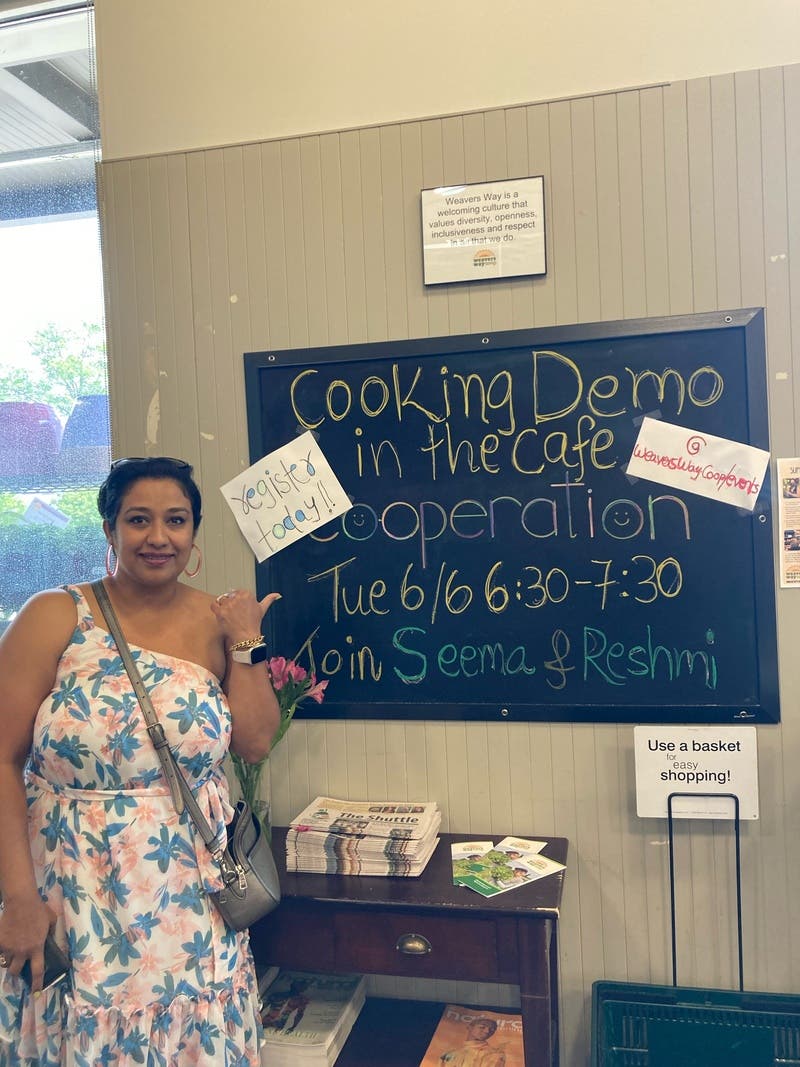 Weavers Way is a
welcoming culture that
values diversity, openness,
inclusiveness and respect
in all that we do.
weavers
way coop
Cooking Demo
in the Cafe
register
today!!
@
WeaversWayCoop/events
Cooperation
Tue 6/6 6:30-7:30
Join Seema & Reshmi
Use a basket
for
easy
shopping!
The Shuttle